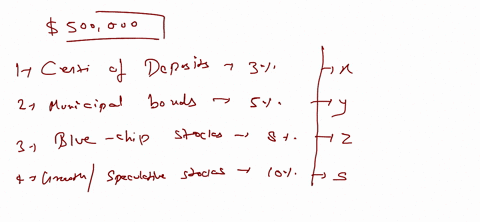 $ 500,000
1→ Certi of Deposits → 3%. → x
2→ Municipal bonds → 5%. → y
3→ Blue-chip stocks → 8%. → z
4→ Growth/ Speculative stocks → 10%. → s